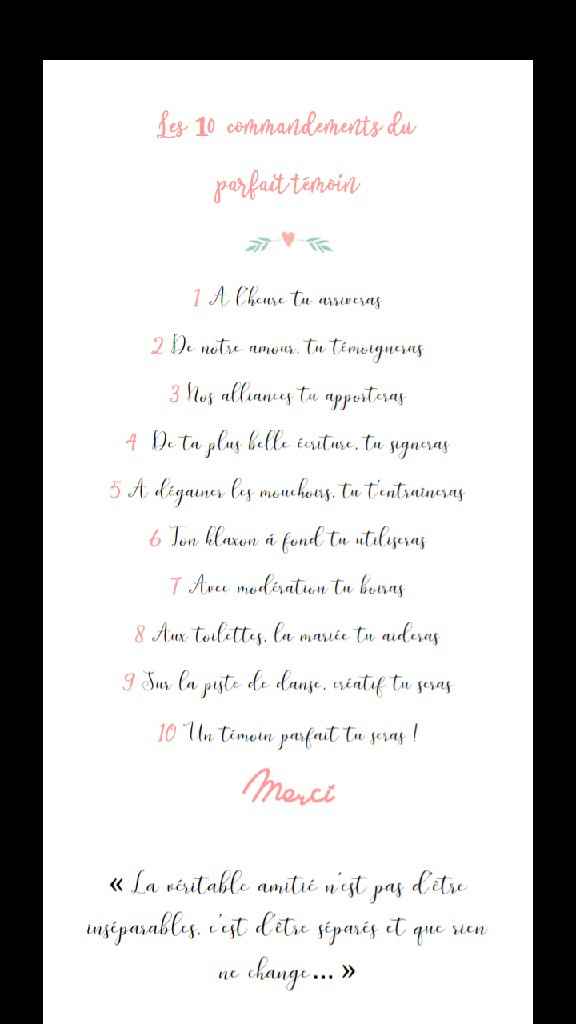 Les 10 commandements du
parfait témoin
1 A l'heure tu arriveras
2 De notre amour, tu témoigneras
3 Nos alliances tu apporteras
4 De ta plus belle écriture, tu signeras
5 A dégainer les mouchoirs, tu t'entraineras
6 Ton klaxon à fond tu utiliseras
7 Avec modération tu boiras
8 Aux toilettes, la mariée tu aideras
9 Sur la piste de danse, créatif tu seras
10 Un témoin parfait tu seras !
Merci
« La véritable amitié n'est pas d'être
inséparables, c'est d'être séparés et que rien
ne change... »